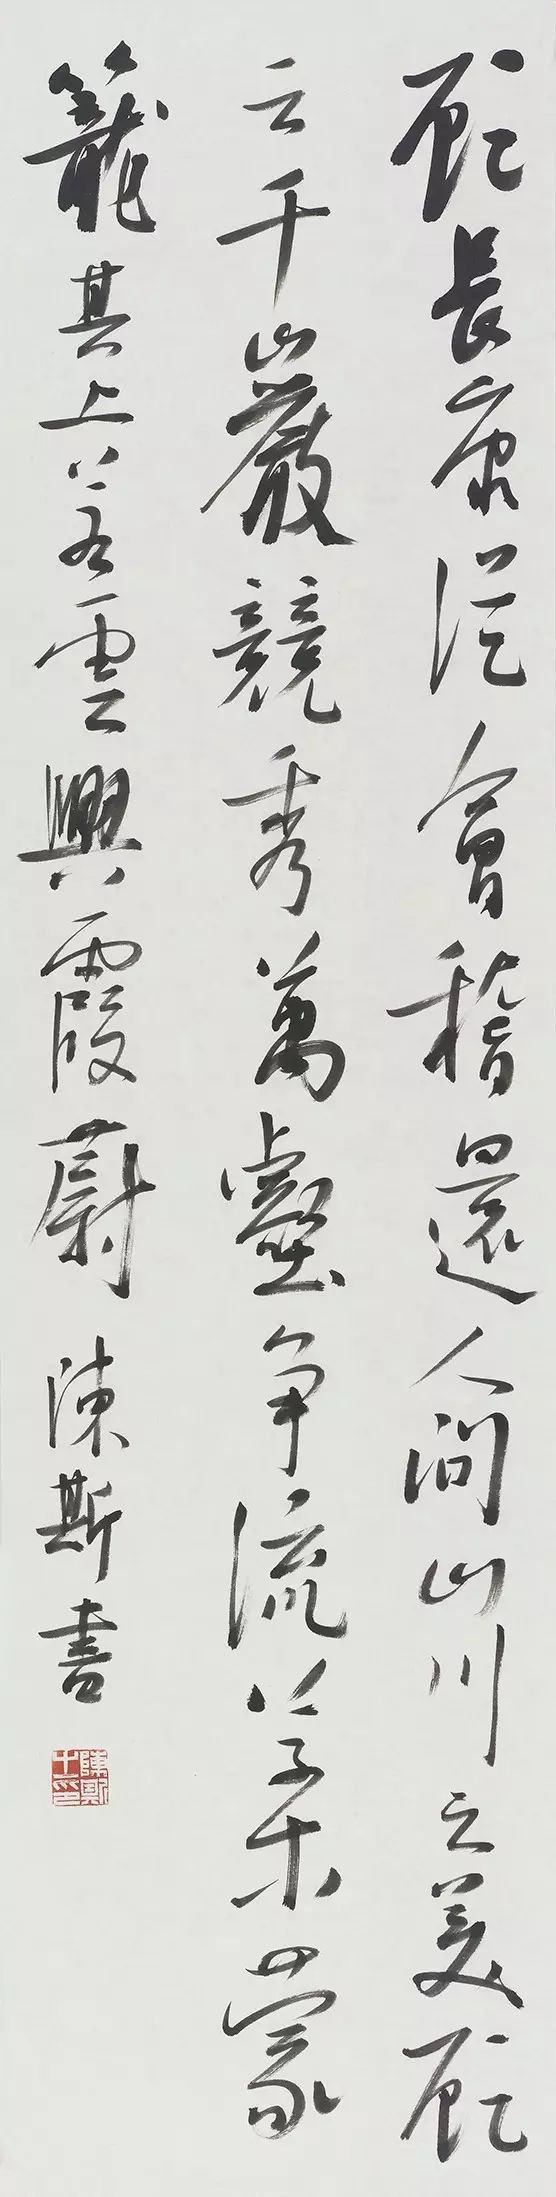 顧長康從會稽還人問山川之美顧
云千巖競秀萬壑争流草木蒙
籠其上若雲興霞蔚 陳斯書
陳斯